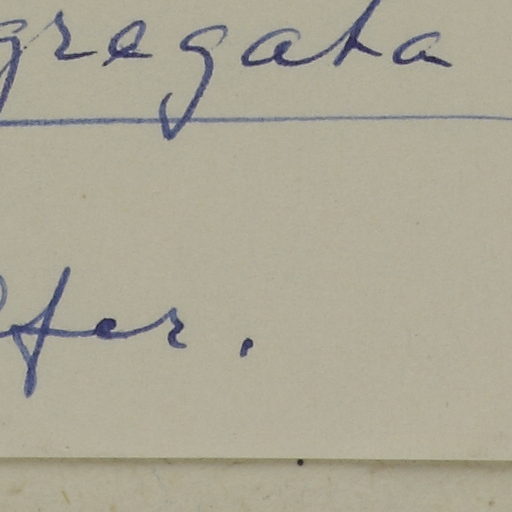 gregata
fer.